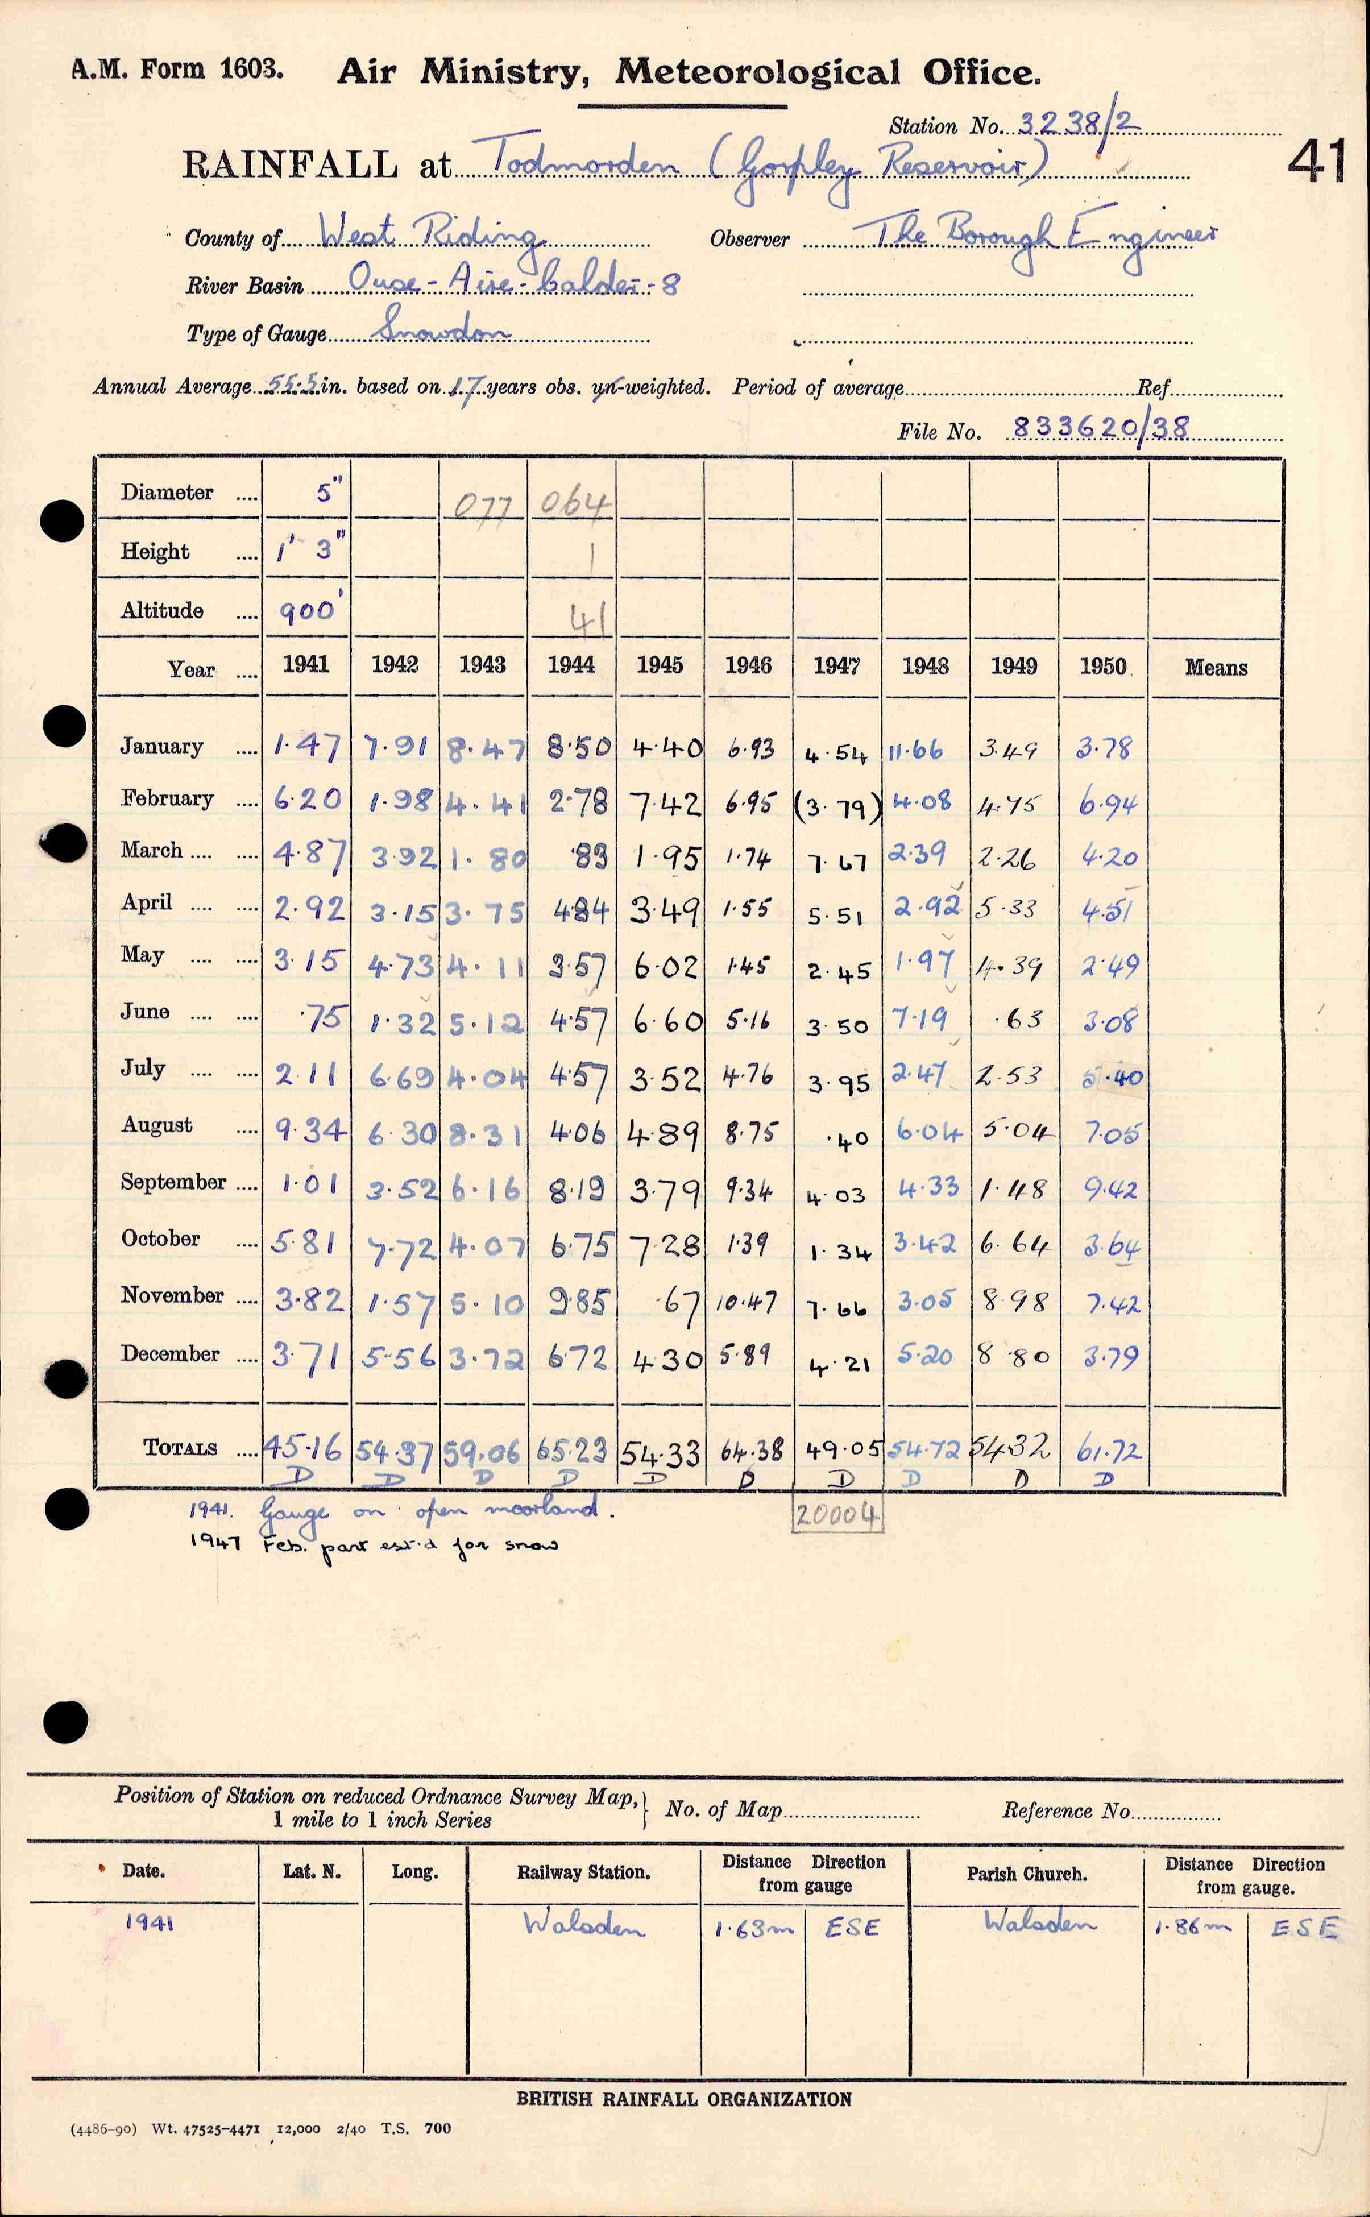 A.M. Form 1603. Air Ministry, Meteorological Office.
Station No. 3238/2
RAINFALL at Todmorden (Gorpley Reservoir) 41
County of West Riding Observer The Borough Engineer
River Basin Ouse - Aire - Calder - 8
Type of Gauge Snowdon
Annual Average 55.5 in. based on 17 years obs. un-weighted. Period of average Ref
File No. 833620/38
Diameter .... 5" 077 064
Height .... 1' 3" 1
Altitude .... 900' 41
Year .... 1941 1942 1943 1944 1945 1946 1947 1948 1949 1950 Means
January .... 1.47 7.91 8.47 8.50 4.40 6.93 4.54 11.66 3.49 3.78
February .... 6.20 1.98 4.41 2.78 7.42 6.95 (3.79) 4.08 4.75 6.94
March .... .... 4.87 3.92 1.80 .83 1.95 1.74 7.67 2.39 2.26 4.20
April .... .... 2.92 3.15 3.75 4.84 3.49 1.55 5.51 2.92 5.33 4.51
May .... .... 3.15 4.73 4.11 3.57 6.02 1.45 2.45 1.97 4.39 2.49
June .... .... .75 1.32 5.12 4.57 6.60 5.16 3.50 7.19 .63 3.08
July .... .... 2.11 6.69 4.04 4.57 3.52 4.76 3.95 2.47 2.53 5.40
August .... 9.34 6.30 8.31 4.06 4.89 8.75 .40 6.04 5.04 7.05
September .... 1.01 3.52 6.16 8.19 3.79 9.34 4.03 4.33 1.48 9.42
October .... 5.81 7.72 4.07 6.75 7.28 1.39 1.34 3.42 6.64 3.64
November .... 3.82 1.57 5.10 9.85 .67 10.47 7.66 3.05 8.98 7.42
December .... 3.71 5.56 3.72 6.72 4.30 5.89 4.21 5.20 8.80 3.79
TOTALS .... 45.16 54.37 59.06 65.23 54.33 64.38 49.05 54.72 54.32 61.72
D D D D D D D D D D
1941. Gauge on open moorland. 20004
1947 Feb. part est.d for snow
Position of Station on reduced Ordnance Survey Map,
1 mile to 1 inch Series } No. of Map Reference No.
Date. Lat. N. Long. Railway Station. Distance Direction from gauge Parish Church. Distance Direction from gauge.
1941 Walsden 1.63m ESE Walsden 1.86m ESE
BRITISH RAINFALL ORGANIZATION
(4486-90) Wt. 47525-4471 12,000 2/40 T.S. 700